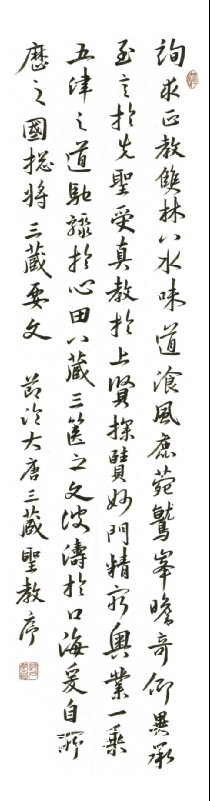 詢求正教雙林八水味道湌風鹿菀鷲峯瞻奇仰異承
至言於先聖受真教於上賢探賾妙門精窮奧業一乘
五律之道馳驟於心田八藏三篋之文波濤於口海爰自所
歷之國揔將三藏要文 節臨大唐三藏聖教序